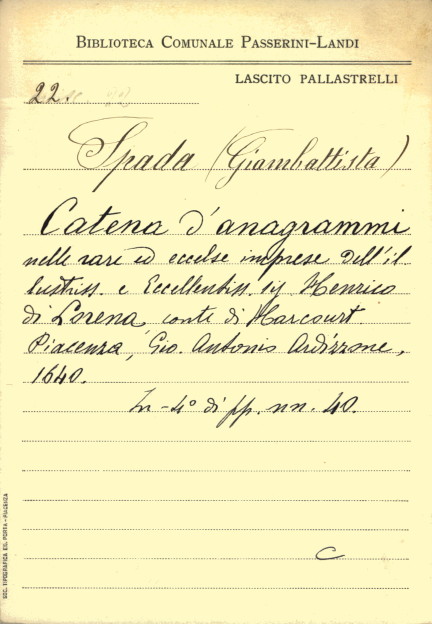 BIBLIOTECA COMUNALE PASSERINI-LANDI
LASCITO PALLASTRELLI
22.
Spada (Giambattista)
Catena d'anagrammi
nelle rare ed eccelse imprese dell'il
lustriss. e Eccellentiss. sig Henrico
di Lorena, conte di Harcourt
Piacenza, Gio. Antonio Ardizzone,
1640.
In-4° di pp. nn. 40.
C
SOC. TIPOGRAFICA ED. PORTA-PIACENZA